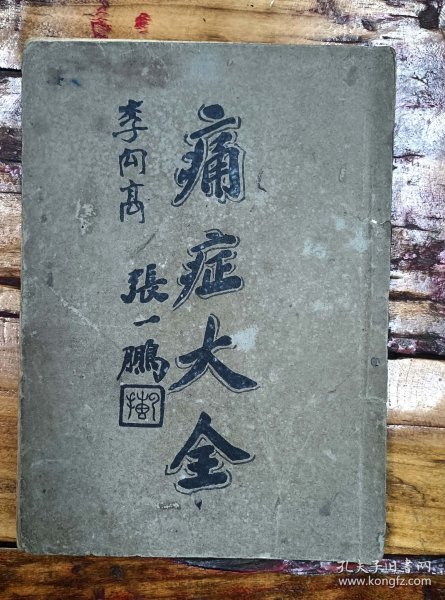 痛症大全
李向高
張一鵬
孔夫子旧书网
www.kongfz.com